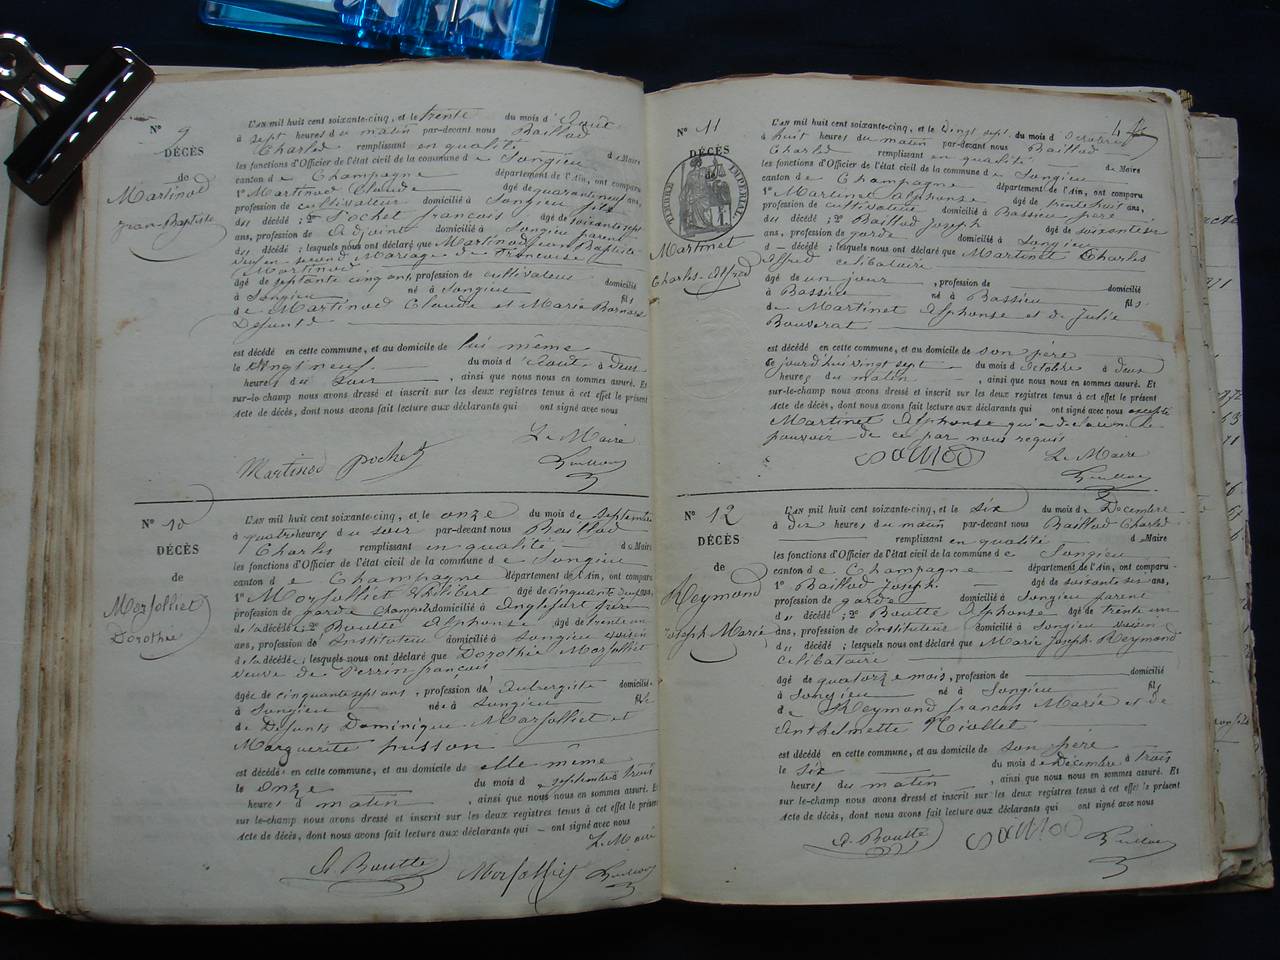 N° 9
DÉCÈS
de
Martinod
Jean-Baptiste
L'AN mil huit cent soixante-cinq, et le trente du mois d'Aout
à sept heures du matin par-devant nous Baillod
Charles remplissant en qualité de Maire
les fonctions d'Officier de l'état civil de la commune de Songieu
canton de Champagne département de l'Ain, ont comparu
1° Martinod Claude âgé de quarante neuf ans,
profession de cultivateur domicilié à Songieu fils
du décédé ; 2° Pochet francois âgé de soixante sept
ans, profession de Adjoint domicilié à Songieu parent
du décédé ; lesquels nous ont déclaré que Martinod Jean Baptiste
veuf en second Mariage de Francoise
Martinod
âgé de septante cinq ans, profession de cultivateur domicilié
à Songieu né à Songieu fils
de Martinod Claude et Marie Bornard
Defunts
est décédé en cette commune, et au domicile de lui même
le vingt neuf du mois d'Aout à deux
heures du soir , ainsi que nous nous en sommes assuré. Et
sur-le-champ nous avons dressé et inscrit sur les deux registres tenus à cet effet le présent
Acte de décès, dont nous avons fait lecture aux déclarants qui ont signé avec nous
Le Maire
Martinod pochet
N° 10
DÉCÈS
de
Morfolliet
Dorothée
L'AN mil huit cent soixante-cinq, et le onze du mois de Septembre
à quatre heures du soir par-devant nous Baillod
Charles remplissant en qualité de Maire
les fonctions d'Officier de l'état civil de la commune de Songieu
canton de Champagne département de l'Ain, ont comparu
1° Morfolliet Philibert âgé de cinquante ans,
profession de garde champêtre domicilié à Anglefort frère
de la décédée ; 2° Boutte Alphonse âgé de trente un
ans, profession de Instituteur domicilié à Songieu voisin
de la décédée ; lesquels nous ont déclaré que Dorothée Morfolliet
veuve de Perrin françois
âgée de cinquante sept ans , profession d'Aubergiste domiciliée
à Songieu née à Songieu fille
de Defunts Dominique Morfolliet et
Marguerite husson
est décédée en cette commune, et au domicile de elle même
le onze du mois de septembre à trois
heures du matin , ainsi que nous nous en sommes assuré. Et
sur-le-champ nous avons dressé et inscrit sur les deux registres tenus à cet effet le présent
Acte de décès, dont nous avons fait lecture aux déclarants qui ont signé avec nous
Le Maire
A. Boutte Morfolliet
N° 11
DÉCÈS
TIMBRE IMPERIAL
Martinet
Charles-Alfred
L'AN mil huit cent soixante-cinq, et le vingt sept du mois d'octobre
à huit heures du matin par-devant nous Baillod
Charles remplissant en qualité de Maire
les fonctions d'Officier de l'état civil de la commune de Songieu
canton de Champagne département de l'Ain, ont comparu
1° Martinet Alphonse âgé de trente huit ans,
profession de cultivateur domicilié à Bassieu père
du décédé ; 2° Baillod Joseph âgé de soixante six
ans, profession de garde domicilié à Songieu
d décédé ; lesquels nous ont déclaré que Martinet Charles
Alfred célibataire
âgé de un jour , profession de domicilié
à Bassieu né à Bassieu fils
de Martinet Alphonse et de Julie
Bouverat
est décédé en cette commune, et au domicile de son père
ce jourd'hui vingt sept du mois d'octobre à deux
heures du matin , ainsi que nous nous en sommes assuré. Et
sur-le-champ nous avons dressé et inscrit sur les deux registres tenus à cet effet le présent
Acte de décès, dont nous avons fait lecture aux déclarants qui ont signé avec nous excepté
Martinet Alphonse qui a déclaré ne
pouvoir de ce par nous requis
Le Maire
N° 12
DÉCÈS
de
Reymond
Joseph Marie
L'AN mil huit cent soixante-cinq, et le six du mois de Decembre
à dix heures du matin par-devant nous Baillod Charles
remplissant en qualité de Maire
les fonctions d'Officier de l'état civil de la commune de Songieu
canton de Champagne département de l'Ain, ont comparu
1° Baillod Joseph âgé de soixante six ans,
profession de garde domicilié à Songieu parent
du décédé ; 2° Boutte Alphonse âgé de trente un
ans, profession d'Instituteur domicilié à Songieu voisin
du décédé ; lesquels nous ont déclaré que Marie Joseph Reymond
célibataire
âgé de quatorze mois, profession de domicilié
à Songieu né à Songieu fils
de Reymond francois Marie et de
Anthelmette Niollet
est décédé en cette commune, et au domicile de son père
le six du mois de Décembre à trois
heures du matin , ainsi que nous nous en sommes assuré. Et
sur-le-champ nous avons dressé et inscrit sur les deux registres tenus à cet effet le présent
Acte de décès, dont nous avons fait lecture aux déclarants qui ont signé avec nous
A. Boutte